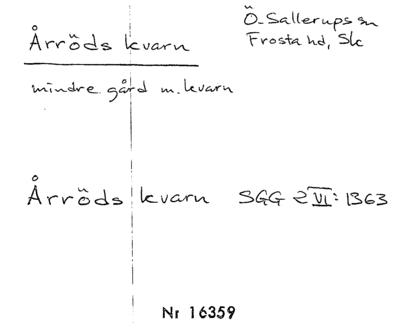 Årröds kvarn
Ö. Sallerups sn
Frosta hd, Sk
mindre gård m. kvarn
Årröds kvarn SGG 2 VI: 1363
Nr 16359